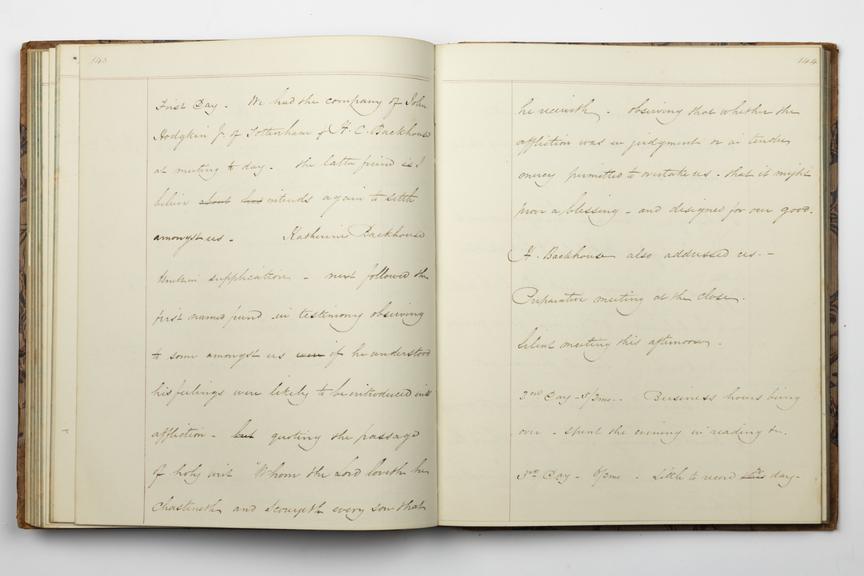 143
First Day. We had the company of John
Hodgkin Jr of Tottenham & H. C. Backhouse
at meeting to day. the latter friend is I
believe about intends again to settle
amongst us. Katherine Backhouse
in supplication - next followed the
first named friend in testimony observing
to some amongst us were if he understood
his feelings were likely to be introduced into
affliction - but quoting the passage
of holy writ "Whom the Lord loveth he
chasteneth and scourgeth every son that
144
he receiveth. observing that whether the
affliction was in judgment or as tender
mercy permitted to overtake us. that it might
prove a blessing - and designed for our good.
H. Backhouse also addressed us. -
Preparative meeting at the close.
Silent meeting this afternoon.
2nd Day - 5/3mo. Business hours being
over - spent the evening in reading &c.
3rd Day - 6/3mo. Little to record this day-